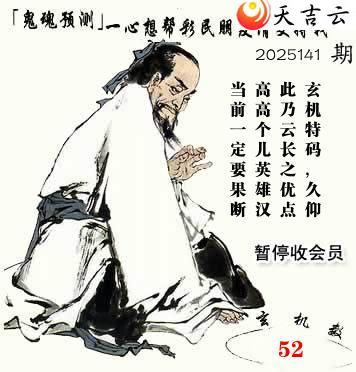 天吉云
「鬼魂预测」一心想帮彩民朋
2025141 期
玄机特码，久仰
此乃云长之优点
高高个儿英雄汉
当前一定要果断
暂停收会员
玄机数
52